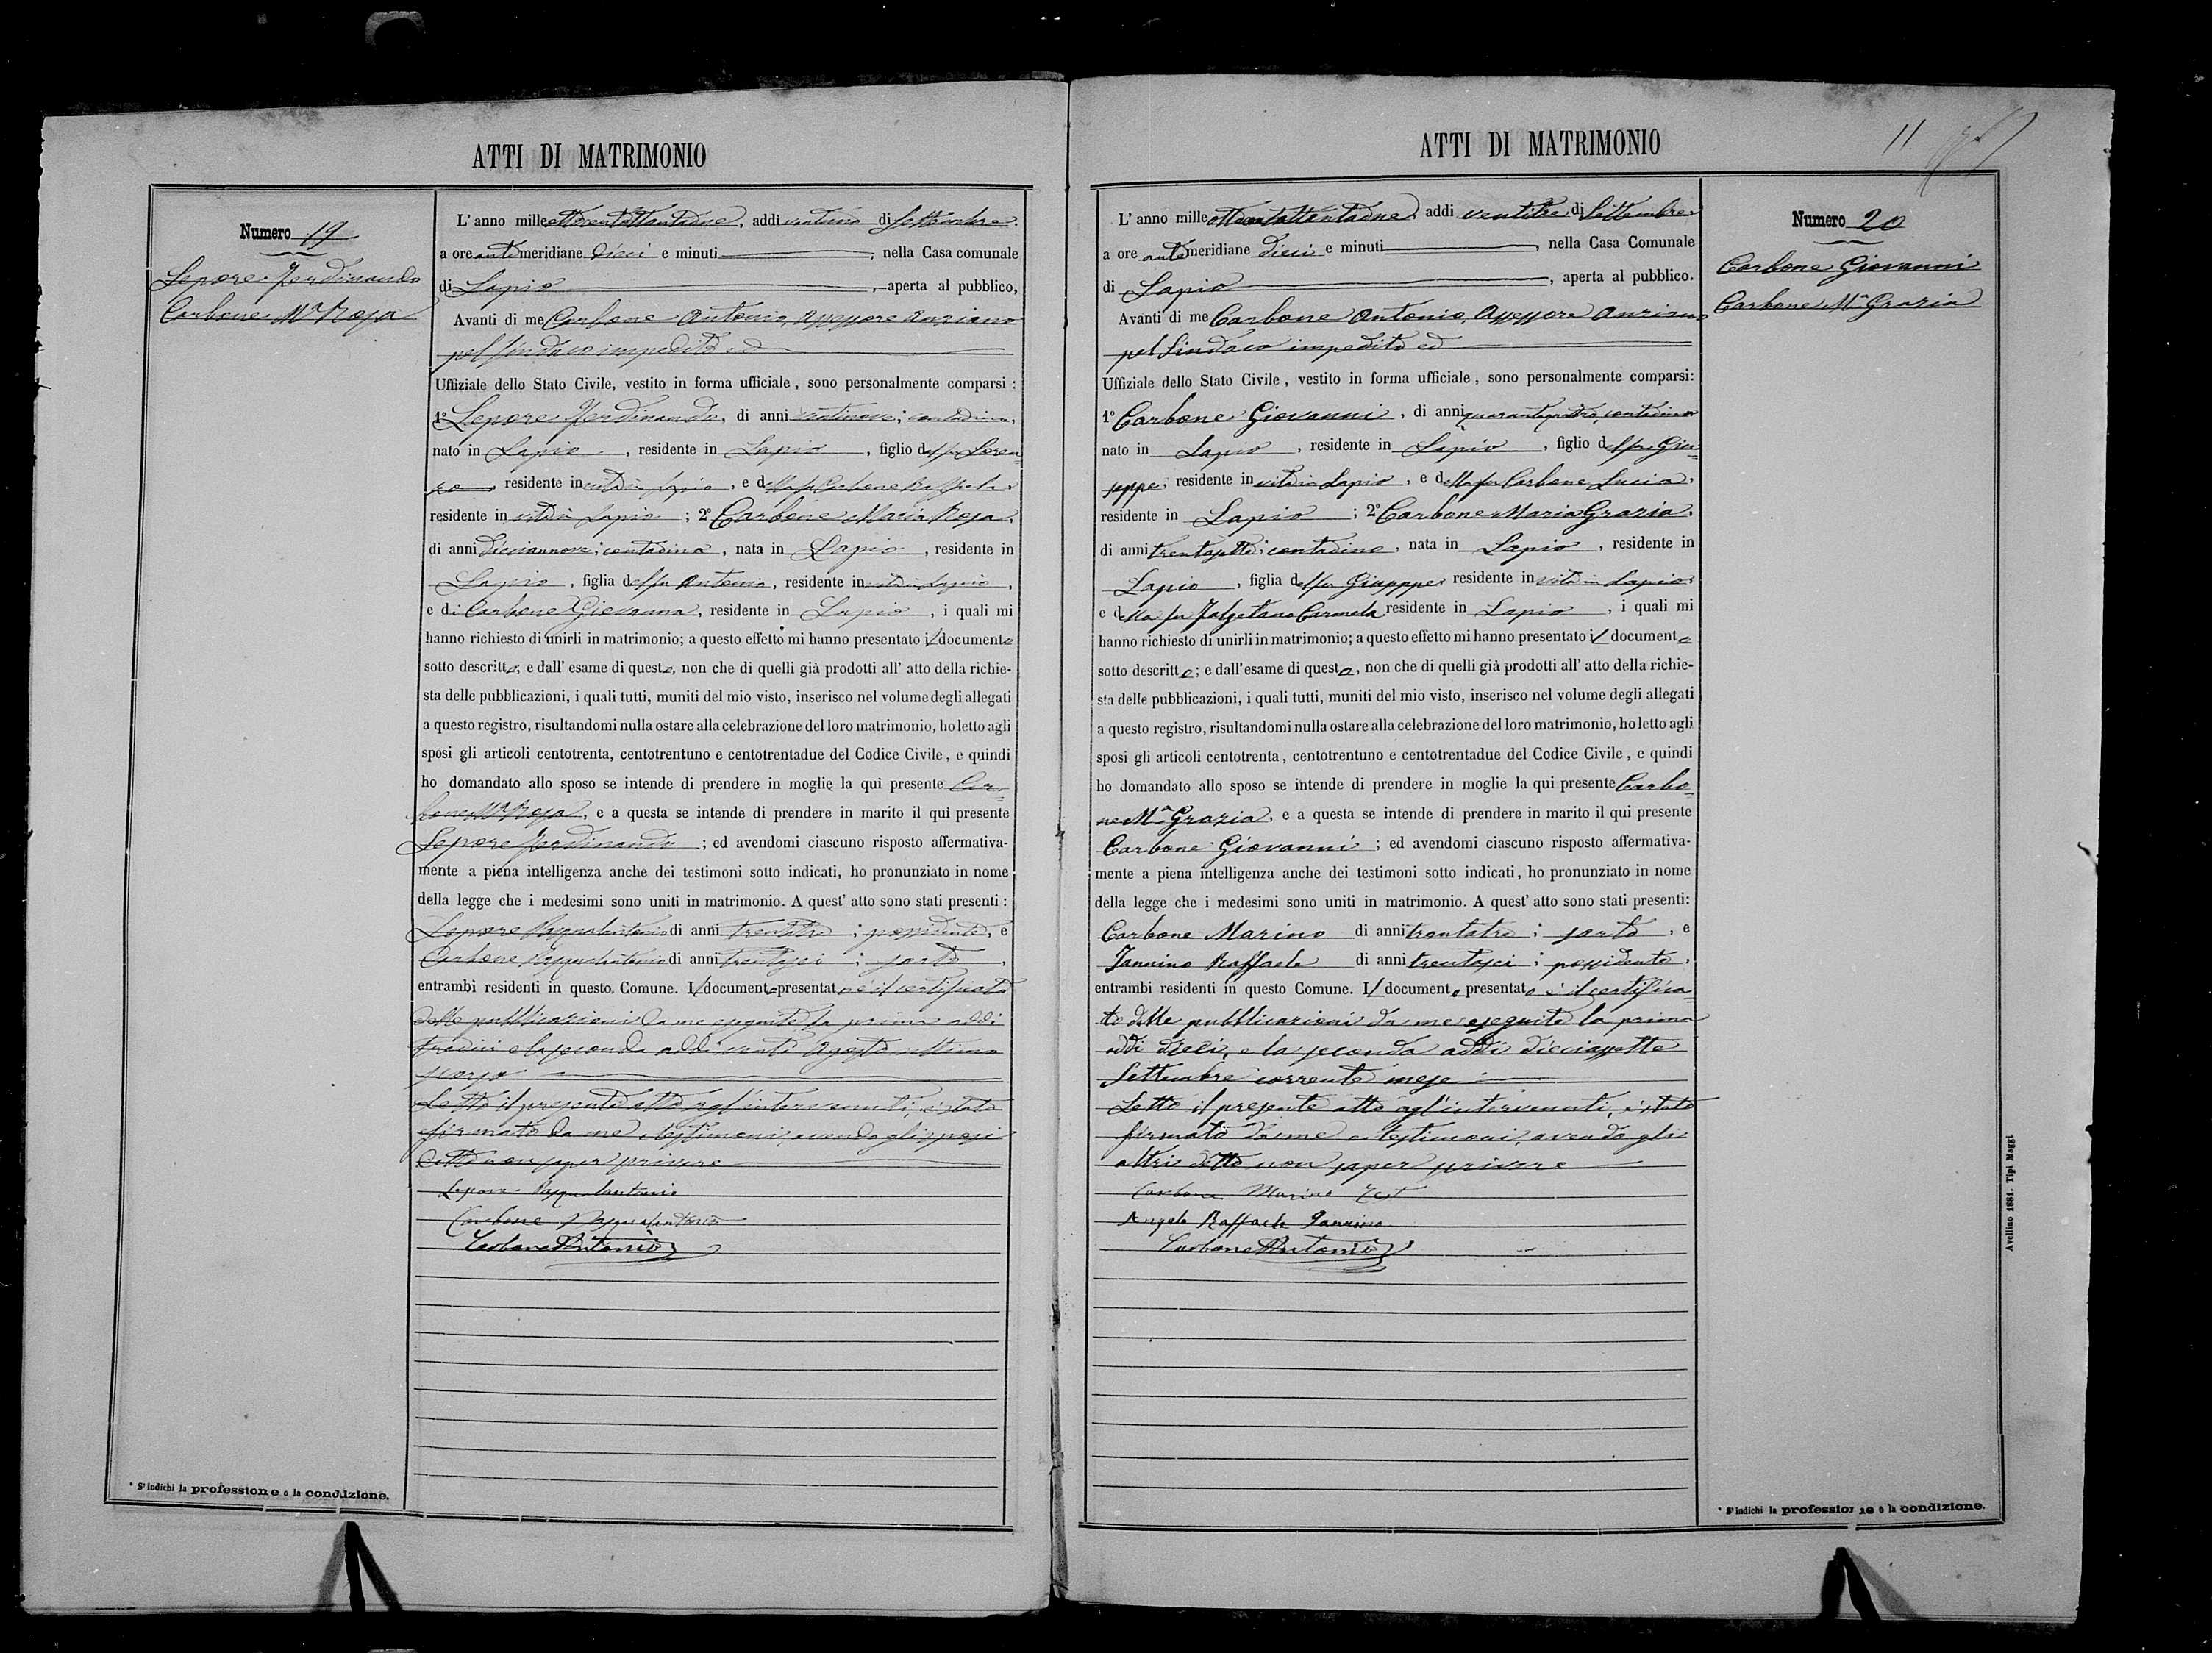 ATTI DI MATRIMONIO
Numero 19
Lepore Ferdinando
Carbone Mª Rosa
L'anno mille ottocentottantadue, addi ventuno di Settembre
a ore anti meridiane dieci e minuti , nella Casa comunale
di Lapio , aperta al pubblico,
Avanti di me Carbone Antonio, Assessore Anziano
pel Sindaco impedito ed
Uffiziale dello Stato Civile, vestito in forma ufficiale, sono personalmente comparsi :
1º Lepore Ferdinando, di anni ventinove; contadino,
nato in Lapio , residente in Lapio , figlio del fu Loren-
zo residente in vita in Lapio , e della fu Carbone Raffaela,
residente in vita in Lapio ; 2º Carbone Maria Rosa,
di anni diciannove; contadina , nata in Lapio , residente in
Lapio , figlia del fu Antonio, residente in vita in Lapio ,
e di Carbone Giovanna, residente in Lapio , i quali mi
hanno richiesto di unirli in matrimonio; a questo effetto mi hanno presentato il documento
sotto descritto; e dall' esame di questo, non che di quelli già prodotti all' atto della richie-
sta delle pubblicazioni, i quali tutti, muniti del mio visto, inserisco nel volume degli allegati
a questo registro, risultandomi nulla ostare alla celebrazione del loro matrimonio, ho letto agli
sposi gli articoli centotrenta, centotrentuno e centotrentadue del Codice Civile, e quindi
ho domandato allo sposo se intende di prendere in moglie la qui presente Car-
bone Mª Rosa, e a questa se intende di prendere in marito il qui presente
Lepore Ferdinando ; ed avendomi ciascuno risposto affermativa-
mente a piena intelligenza anche dei testimoni sotto indicati, ho pronunziato in nome
della legge che i medesimi sono uniti in matrimonio. A quest' atto sono stati presenti :
Lepore Pasqualantonio di anni trentatre ; possidente, e
Carbone Pasqualantonio di anni trentasei ; sarto ,
entrambi residenti in questo Comune. Il documento presentato è il certificato
delle pubblicazioni da me eseguite la prima addi
tredici e la seconda addi venti Agosto ultimo
scorso
Letto il presente atto agl'intervenuti, è stato
firmato da me e testimoni, avendo gli sposi
detto non saper scrivere
Lepore Pasqualantonio
Carbone Pasqualantonio
Carbone Antonio
* S'indichi la professione o la condizione.
ATTI DI MATRIMONIO
11
L'anno mille ottocentottantadue, addi ventitre di Settembre
a ore anti meridiane dieci e minuti , nella Casa Comunale
di Lapio , aperta al pubblico.
Avanti di me Carbone Antonio, Assessore Anziano
pel Sindaco impedito ed
Uffiziale dello Stato Civile, vestito in forma ufficiale, sono personalmente comparsi:
1º Carbone Giovanni , di anni quarantaquattro, contadino
nato in Lapio , residente in Lapio , figlio del fu Giu-
seppe, residente in vita in Lapio , e della fu Carbone Lucia,
residente in Lapio ; 2º Carbone Maria Grazia,
di anni trentasette; contadina , nata in Lapio , residente in
Lapio , figlia del fu Giuseppe, residente in vita in Lapio
e della fu Carmela residente in Lapio , i quali mi
hanno richiesto di unirli in matrimonio; a questo effetto mi hanno presentato il documento
sotto descritto; e dall'esame di questo, non che di quelli già prodotti all' atto della richie-
sta delle pubblicazioni, i quali tutti, muniti del mio visto, inserisco nel volume degli allegati
a questo registro, risultandomi nulla ostare alla celebrazione del loro matrimonio, ho letto agli
sposi gli articoli centotrenta, centotrentuno e centotrentadue del Codice Civile, e quindi
ho domandato allo sposo se intende di prendere in moglie la qui presente Carbo-
ne Mª Grazia, e a questa se intende di prendere in marito il qui presente
Carbone Giovanni ; ed avendomi ciascuno risposto affermativa-
mente a piena intelligenza anche dei testimoni sotto indicati, ho pronunziato in nome
della legge che i medesimi sono uniti in matrimonio. A quest' atto sono stati presenti:
Carbone Marino di anni trentatre ; sarto , e
Iannino Raffaele di anni trentasei ; possidente,
entrambi residenti in questo Comune. Il documento presentato è il certifica-
to delle pubblicazioni da me eseguite la prima
addi dieci, e la seconda addi diciassette
Settembre corrente mese
Letto il presente atto agl'intervenuti, è stato
firmato da me e testimoni, avendo gli
altri detto non saper scrivere
Carbone Marino Test
Angelo Raffaele Iannino
Carbone Antonio
Numero 20
Carbone Giovanni
Carbone Mª Grazia
* S'indichi la professione o la condizione.
Avellino 1881. Tipi Maggi